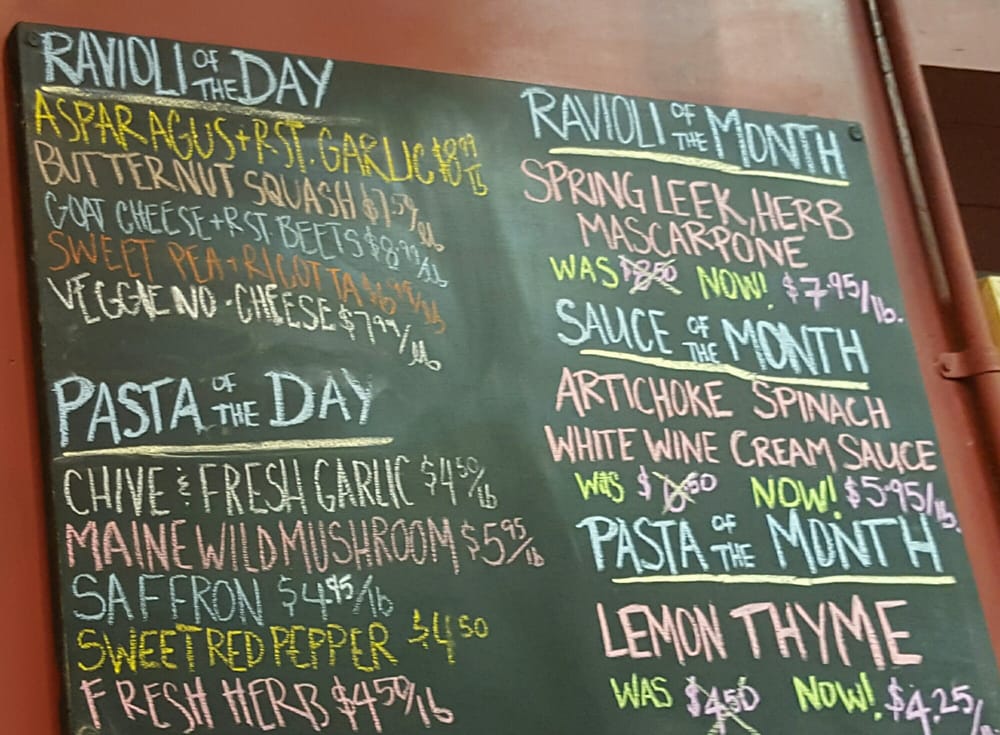 RAVIOLI OF THE DAY
ASPARAGUS + RST. GARLIC $8.99 lb
BUTTERNUT SQUASH $7.59/lb
GOAT CHEESE + RST BEETS $8.99/lb
SWEET PEA + RICOTTA $6.99/lb
VEGGIE NO-CHEESE $7.99/lb
PASTA OF THE DAY
CHIVE & FRESH GARLIC $4.50/lb
MAINE WILD MUSHROOM $5.95/lb
SAFFRON $4.95/lb
SWEET RED PEPPER $4.50
FRESH HERB $4.50/lb
RAVIOLI OF THE MONTH
SPRING LEEK, HERB
MASCARPONE
WAS $8.50 NOW! $7.95/lb.
SAUCE OF THE MONTH
ARTICHOKE SPINACH
WHITE WINE CREAM SAUCE
WAS $6.50 NOW! $5.95/lb.
PASTA OF THE MONTH
LEMON THYME
WAS $4.50 NOW! $4.25/